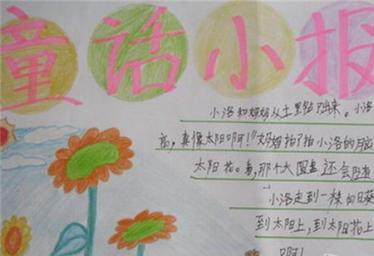 童话小报
小洛和妈妈从土里钻出来。小洛
亮,真像太阳啊!"妈妈拍了拍小洛的脑
太阳花。看,那个大圆盘还会
小洛走到一棵向日葵
到太阳上,到太阳花上
啊!